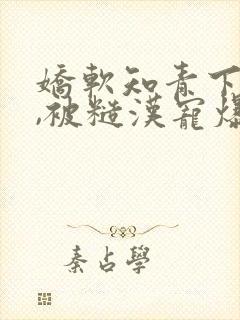 嬌軟知青下
,被糙漢寵爆
秦占學